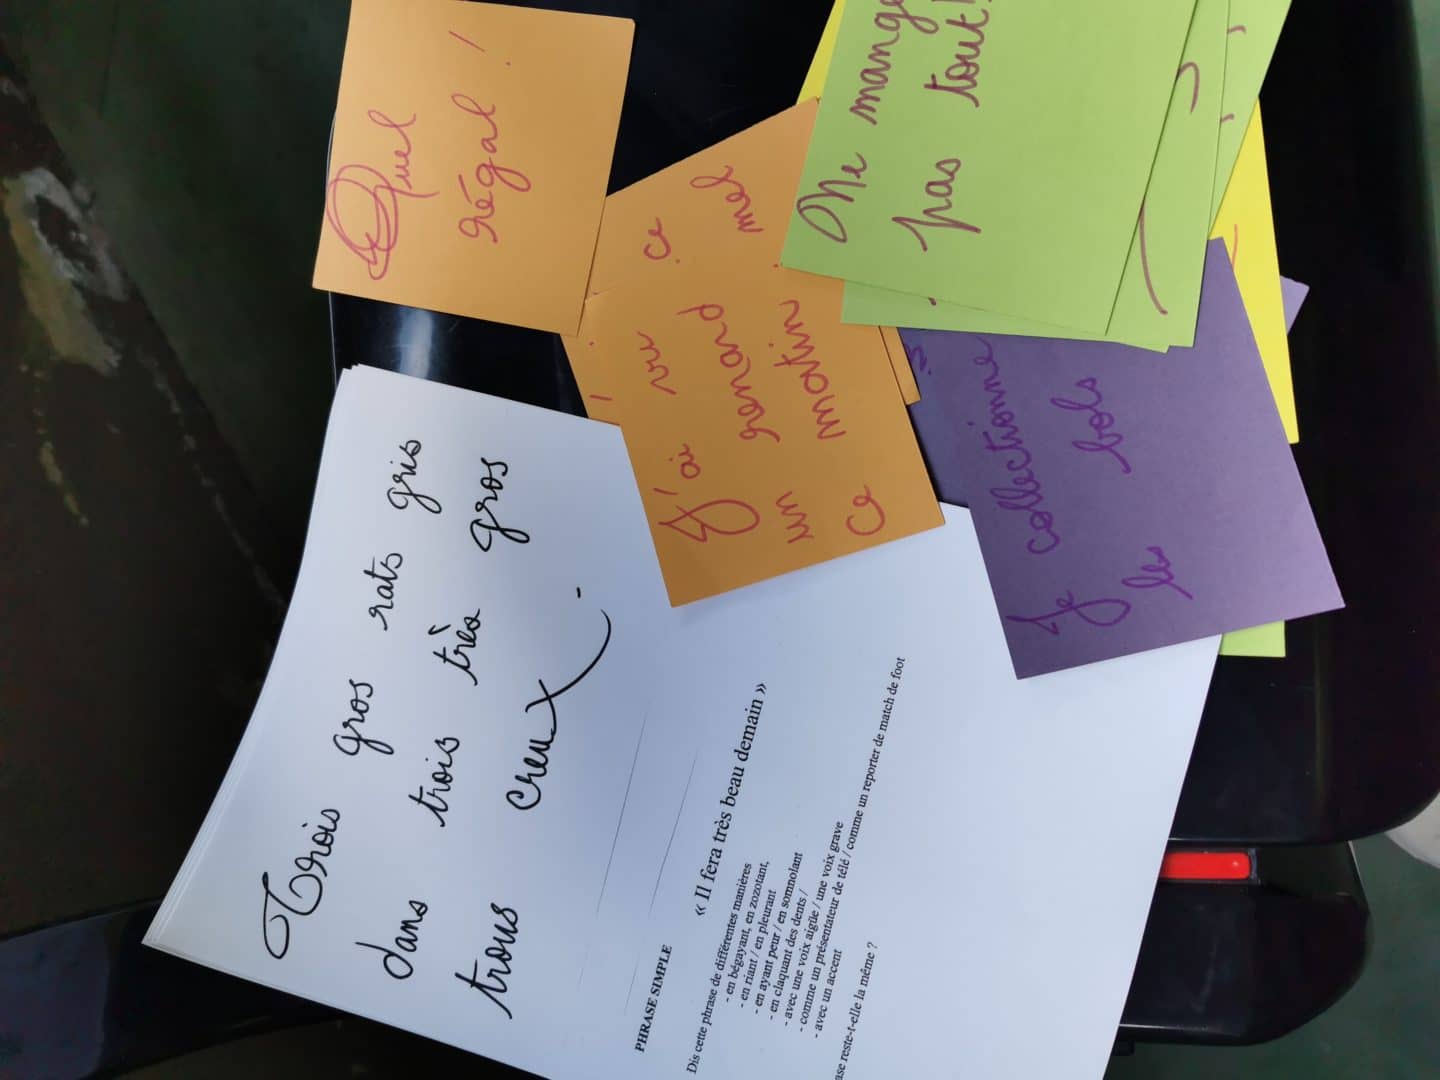 Quel
régal !
Ne mange
pas tout !
J'ai vu ce
un renard mel
ce matin
Je collectionne
les bols
Trois gros rats gris
dans trois très gros
trous creux.
PHRASE SIMPLE
« Il fera très beau demain »
Dis cette phrase de différentes manières
- en bégayant, en zozotant,
- en riant / en pleurant
- en ayant peur / en somnolant
- en claquant des dents /
- avec une voix aigüe / une voix grave
- comme un présentateur de télé / comme un reporter de match de foot
- avec un accent
ase reste-t-elle la même ?